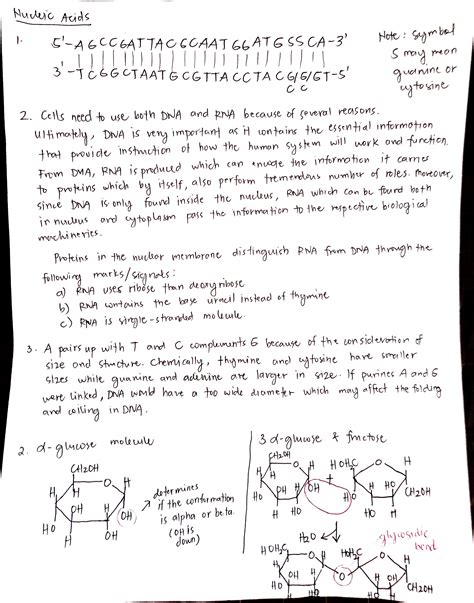 Nucleic Acids
1.
5'-AGCCGATTACGCAATGGATGSSCA-3'
3'-TCGGCTAATGCGTTACCTACG/G/GT-5'
C C
Note: Symbol
S may mean
guanine or
cytosine
2. Cells need to use both DNA and RNA because of several reasons.
Ultimately, DNA is very important as it contains the essential information
that provide instruction of how the human system will work and function.
From DNA, RNA is produced which can encode the information it carries
to proteins which by itself, also perform tremendous number of roles. Moreover,
since DNA is only found inside the nucleus, RNA which can be found both
in nucleus and cytoplasm pass the information to the respective biological
machineries.
Proteins in the nuclear membrane distinguish RNA from DNA through the
following marks/signals:
a) RNA uses ribose than deoxyribose
b) RNA contains the base uracil instead of thymine
c) RNA is single-stranded molecule.
3. A pairs up with T and C complements G because of the consideration of
size and structure. Chemically, thymine and cytosine have smaller
sizes while guanine and adenine are larger in size. If purines A and G
were linked, DNA would have a too wide diameter which may affect the folding
and coiling in DNA.
2. α-glucose molecule
CH2OH
H
O
H
H
OH
H
HO
OH
H
OH
determines
if the conformation
is alpha or beta.
(OH is
down)
3 α-glucose & fructose
CH2OH
H
O
H
H
OH
H
HO
OH
H
OH
+
HOH2C
O
H
H
HO
HO
CH2OH
OH
H
H2O
glycosidic
bond
HOH2C
O
H
H
H
OH
HO
H
OH
O
HOH2C
O
H
H
HO
CH2OH
OH
H